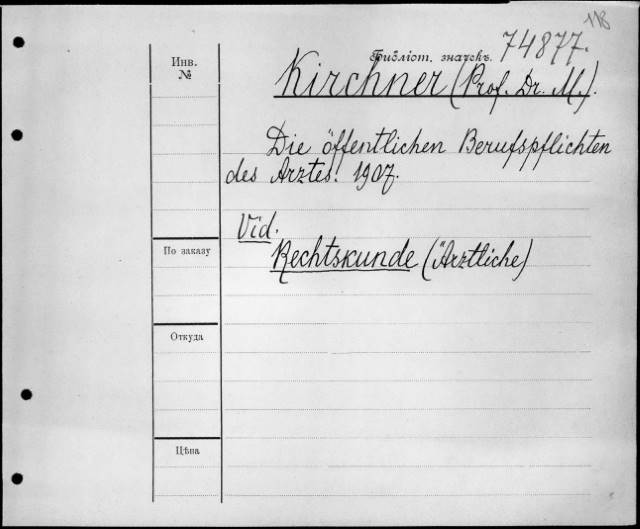 118
Инв.
№
Библіот. значекъ. 74877.
Kirchner (Prof. Dr. M.).
Die öffentlichen Berufspflichten
des Arztes. 1907.
Vid.
Rechtskunde (Ärztliche)
По заказу
Откуда
Цѣна